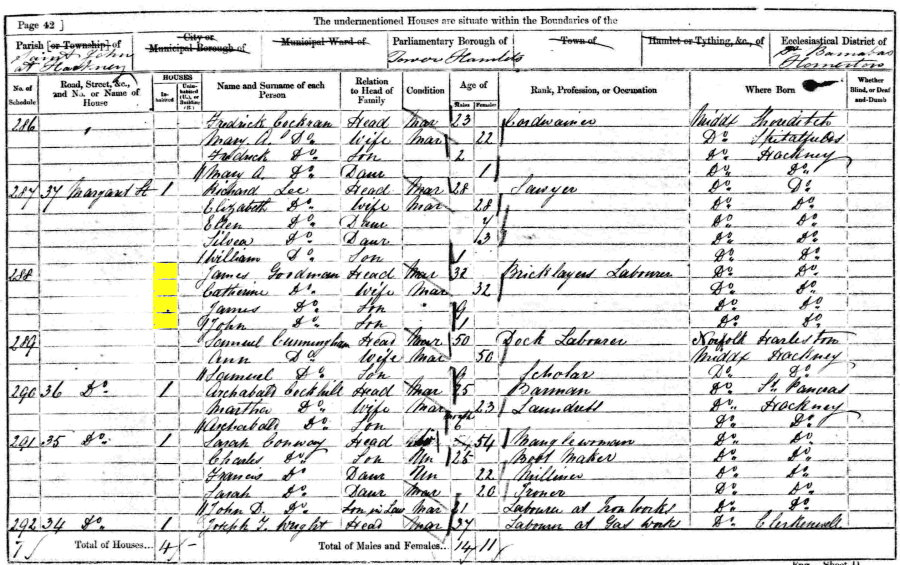 Page 42 ] The undermentioned Houses are situate within the Boundaries of the
Parish [or Township] of City or Municipal Borough of Municipal Ward of Parliamentary Borough of Town of Hamlet or Tything, &c., of Ecclesiastical District of
Saint John at Hackney Tower Hamlets St Barnabas Homerton
No. of Schedule Road, Street, &c., and No. or Name of House HOUSES Inhabited Uninhabited (U.), or Building (B.) Name and Surname of each Person Relation to Head of Family Condition Age of Males Females Rank, Profession, or Occupation Where Born Whether Blind, or Deaf-and-Dumb
286 Fredrick Cochran Head Mar 23 Cordwainer Middx Shoreditch
Mary A. Do Wife Mar 22 Do Spitalfields
Fredrick Do Son 2 Do Hackney
Mary A. Do Daur 1 Do Do
287 37 Margaret St 1 Richard Lee Head Mar 28 Sawyer Do Do
Elizabeth Do Wife Mar 28 Do Do
Ellen Do Daur Do Do
Silvea Do Daur 3 Do Do
William Do Son 1 Do Do
288 James Goodman Head Mar 32 Bricklayers Labourer Do Do
Catherine Do Wife Mar 32 Do Do
James Do Son 9 Do Do
John Do Son 1 Do Do
289 Samuel Cunningham Head Mar 50 Dock Labourer Norfolk Harleston
Ann Do Wife Mar 50 Middx Hackney
Samuel Do Son 9 Scholar Do Do
290 36 Do 1 Archabald Cockhill Head Mar 25 Barman Do St Pancras
Martha Do Wife Mar 23 Laundress Do Hackney
Archabald Do Son months 6 Do Do
291 35 Do 1 Sarah Conway Head 54 Manglewoman Do Do
Charles Do Son Un 25 Boot Maker Do Do
Francis Do Daur Un 22 Milliner Do Do
Sarah Do Daur Mar 20 Ironer Do Do
John D. Do Son in Law Mar 21 Labourer at Iron Works Do Do
292 34 Do 1 Joseph T. Wright Head Mar 37 Labourer at Gas Work Do Clerkenwell
7 Total of Houses... 4 - Total of Males and Females... 14 11
Eng.—Sheet D.